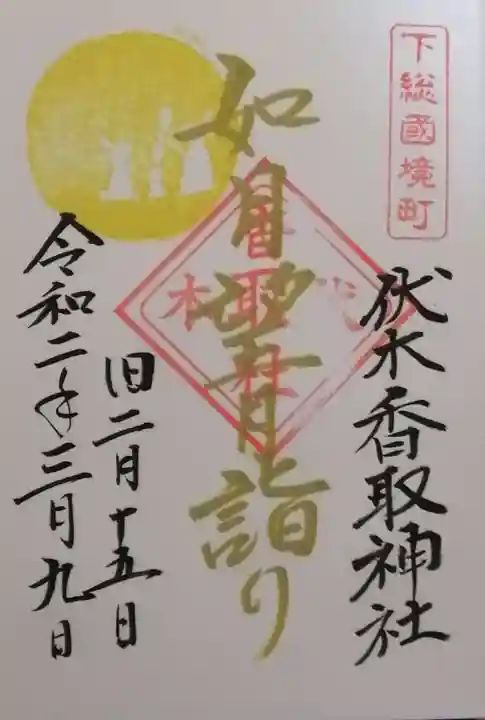 下総國境町
伏木香取神社
如月望月詣り
伏木
香取
社
旧二月十五日
令和二年三月九日